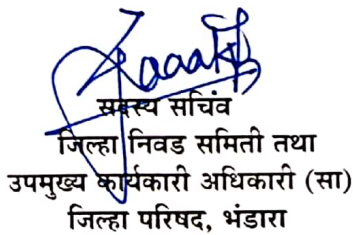 सदस्य सचिंव
जिल्हा निवड समिती तथा
उपमुख्य कार्यकारी अधिकारी (सा)
जिल्हा परिषद, भंडारा